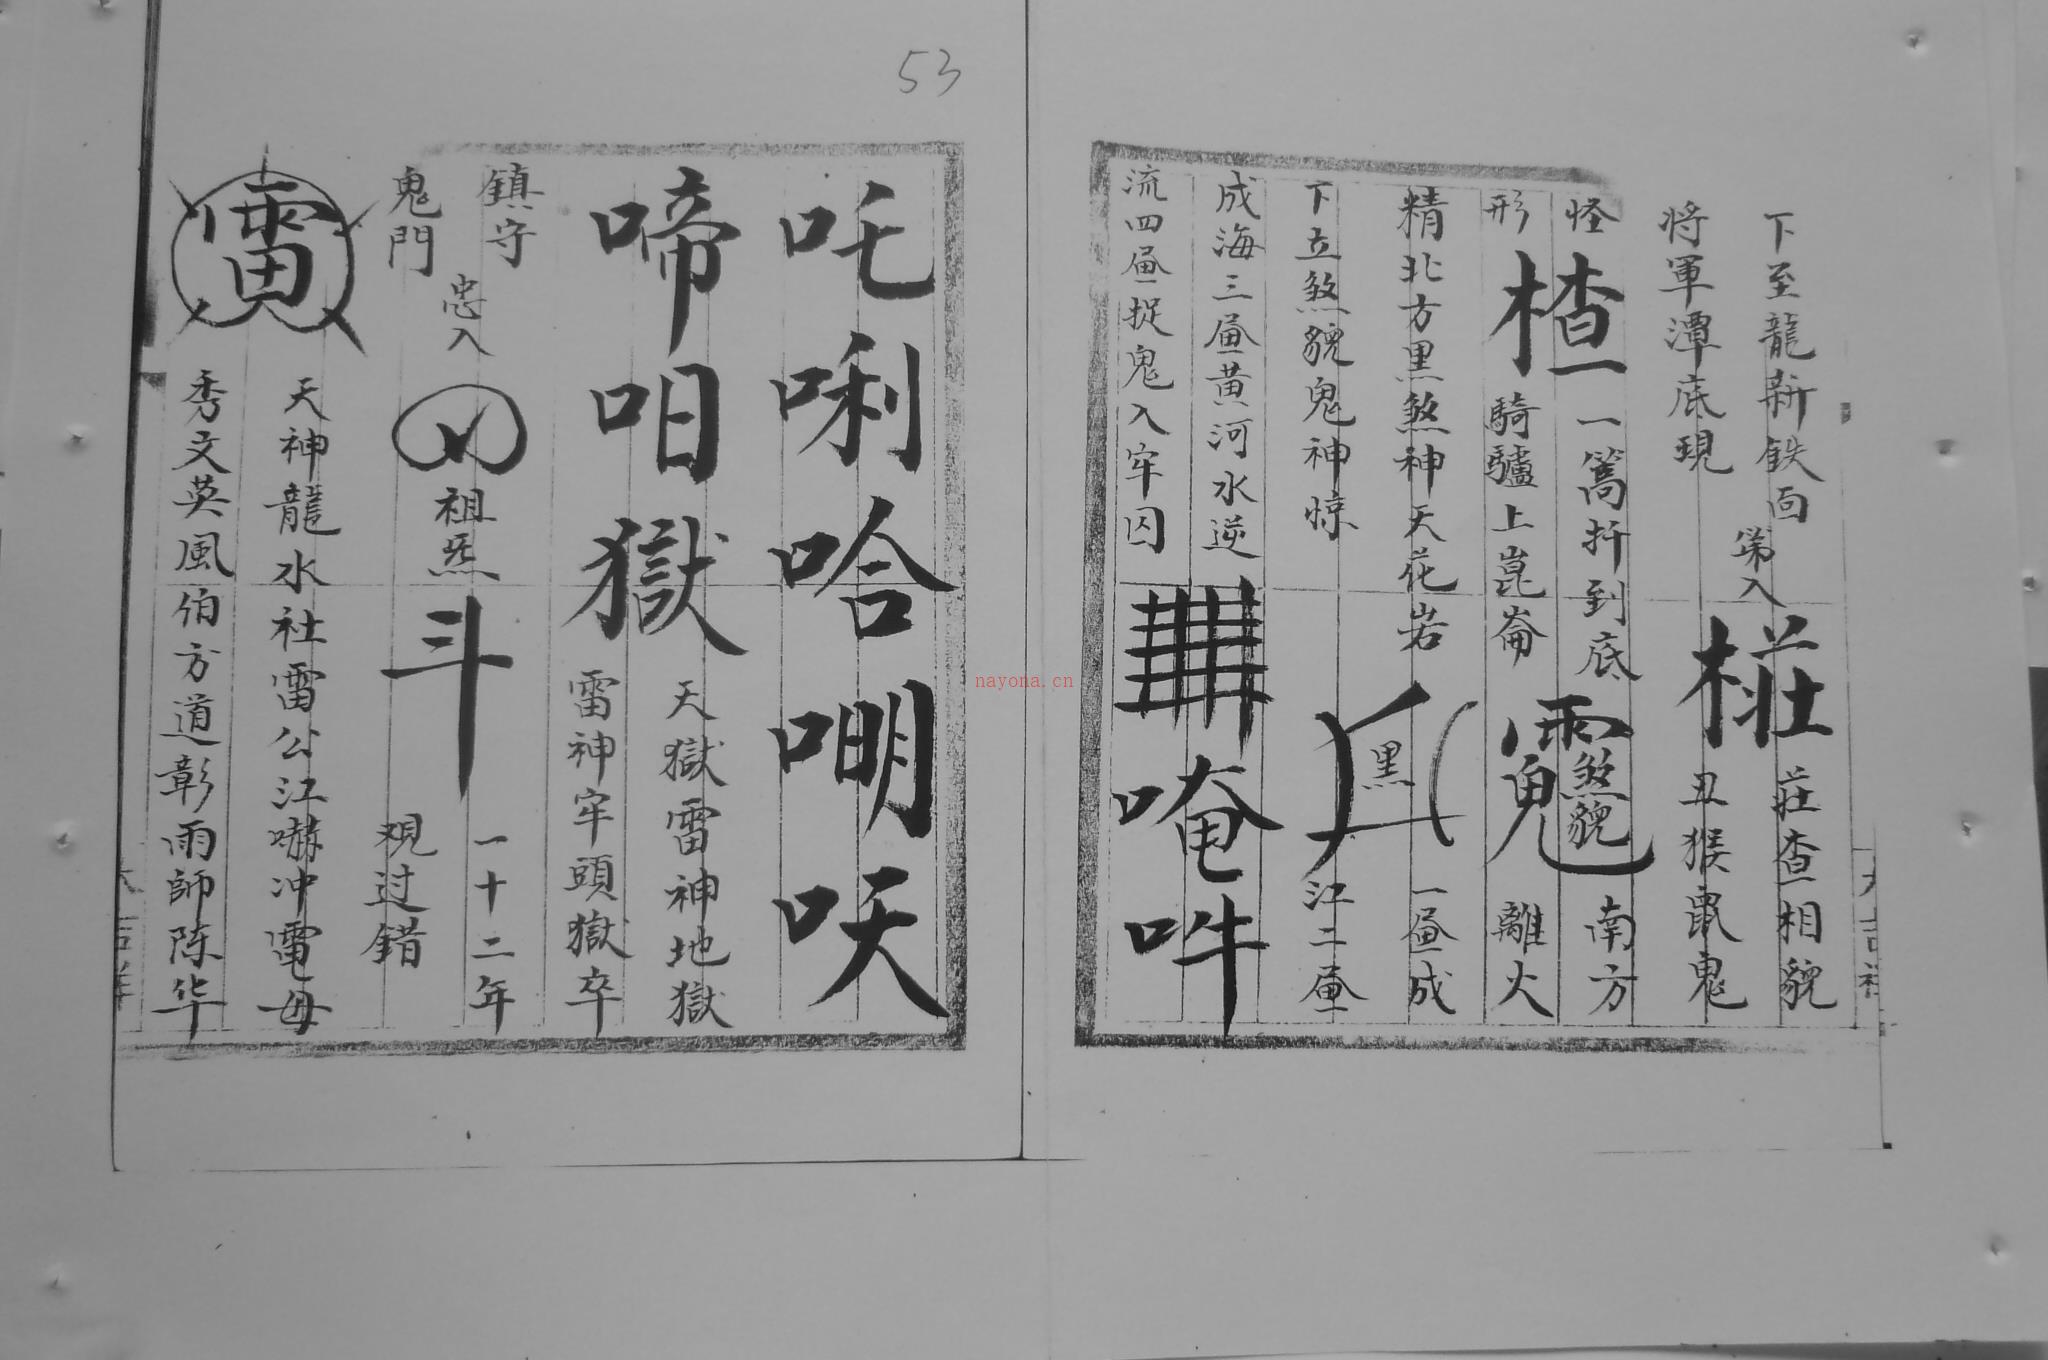 下至龍新鉄面
第入
莊查相貌
將軍潭底現
丑猴鼠鬼
怪
一篙扦到底
南方
形
楂
騎驢上崑崙
離火
精北方黑煞神天花岩
一畫成
下立煞貌鬼神惊
黑
江二畫
成海三畫黄河水逆
流四畫捉鬼入牢囚
唵吽
53
吒唎哈嘣㕭
啼呾獄
天獄雷神地獄
雷神牢頭獄卒
鎮守
鬼門
忠入
祖炁
斗
一十二年
观过錯
雷
天神龍水社雷公江嚇冲電母
秀文英風伯方道彰雨師陈华
nayona.cn